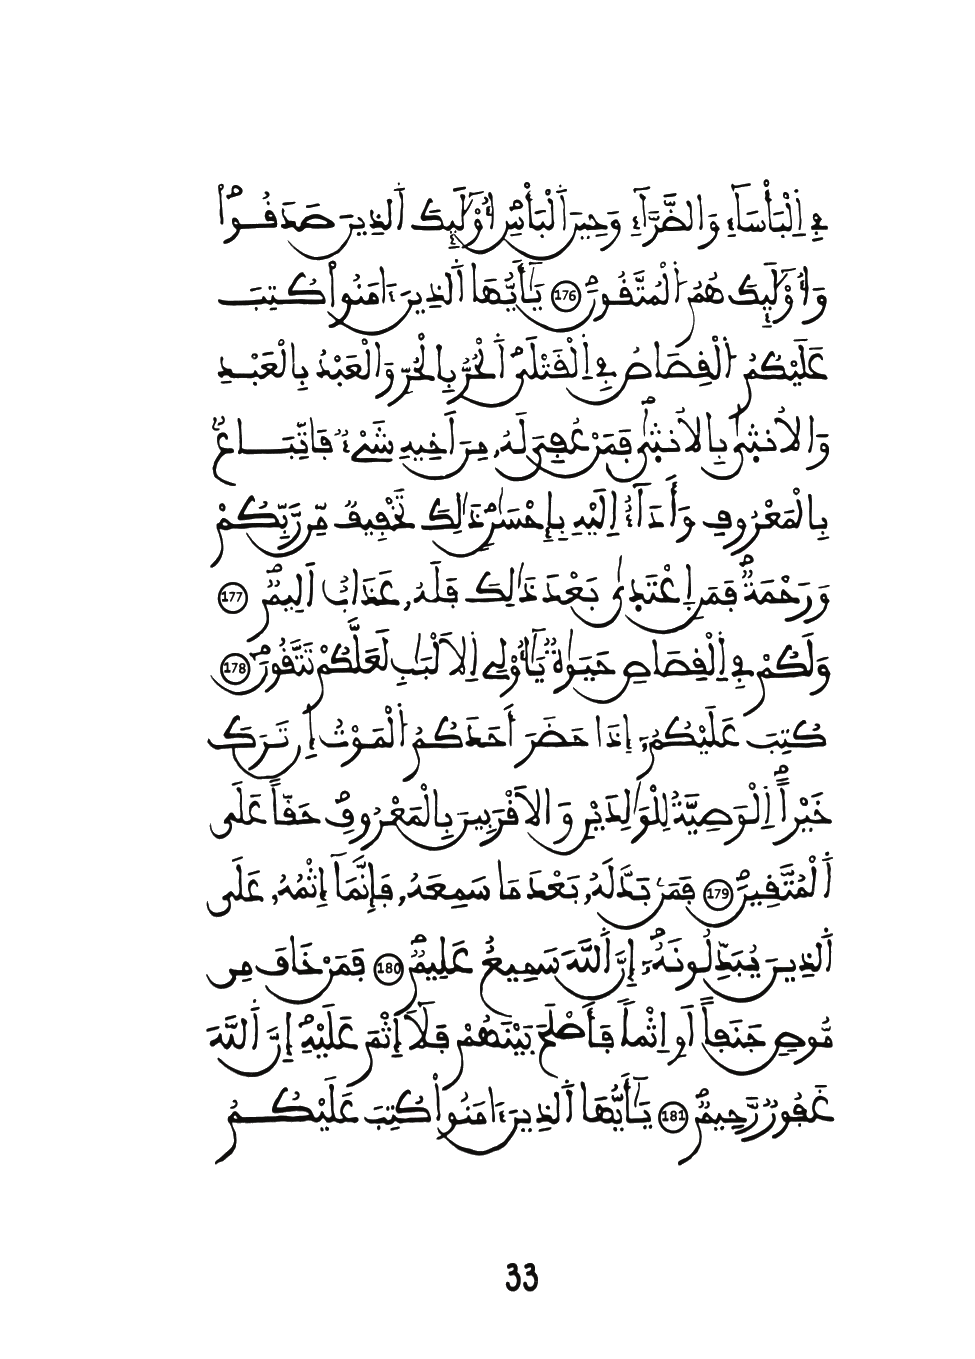 فِي اِ۬لْبَأْسَآءِ وَالضَّرَّآءِ وَحِينَ اَ۬لْبَأْسِ أُوْلَٰٓئِكَ اَ۬لذِينَ صَدَقُواْۖ
وَأُوْلَٰٓئِكَ هُمُ اُ۬لْمُتَّقُونَۖ 176 يَٰٓأَيُّهَا اَ۬لذِينَ ءَامَنُواْ كُتِبَ
عَلَيْكُمُ اُ۬لْقِصَاصُ فِي اِ۬لْقَتْلَىۖ اَ۬لْحُرُّ بِالْحُرِّ وَالْعَبْدُ بِالْعَبْدِ
وَالُانث۪ىٰ بِالُانث۪ىٰۖ فَمَنْ عُفِيَ لَهُۥ مِنَ اَخِيهِ شَےْءٞ فَاتِّبَاعُۢ
بِالْمَعْرُوفِ وَأَدَآءٌ اِلَيْهِ بِإِحْسَٰنٖۖ ذَٰلِكَ تَخْفِيفٞ مِّن رَّبِّكُمْ
وَرَحْمَةٞۖ فَمَنِ اِ۪عْتَد۪ىٰ بَعْدَ ذَٰلِكَ فَلَهُۥ عَذَابٌ اَلِيمٞۖ 177
وَلَكُمْ فِي اِ۬لْقِصَاصِ حَيَوٰةٞ يَٰٓأُوْلِے اِ۬لَالْبَٰبِ لَعَلَّكُمْ تَتَّقُونَۖ 178
كُتِبَ عَلَيْكُمُۥٓ إِذَا حَضَرَ أَحَدَكُمُ اُ۬لْمَوْتُ إِن تَرَكَ
خَيْراًۖ اِ۬لْوَصِيَّةُ لِلْوَٰلِدَيْنِ وَالَاقْرَبِينَ بِالْمَعْرُوفِۖ حَقّاً عَلَى
اَ۬لْمُتَّقِينَۖ 179 فَمَنۢ بَدَّلَهُۥ بَعْدَ مَا سَمِعَهُۥ فَإِنَّمَآ إِثْمُهُۥ عَلَى
اَ۬لذِينَ يُبَدِّلُونَهُۥٓۖ إِنَّ اَ۬للَّهَ سَمِيعٌ عَلِيمٞۖ 180 فَمَنْ خَافَ مِن
مُّوصٖ جَنَفاً اَوِ اِثْماً فَأَصْلَحَ بَيْنَهُمْ فَلَآ إِثْمَ عَلَيْهِۖ إِنَّ اَ۬للَّهَ
غَفُورٞ رَّحِيمٞۖ 181 يَٰٓأَيُّهَا اَ۬لذِينَ ءَامَنُواْ كُتِبَ عَلَيْكُمُ
33